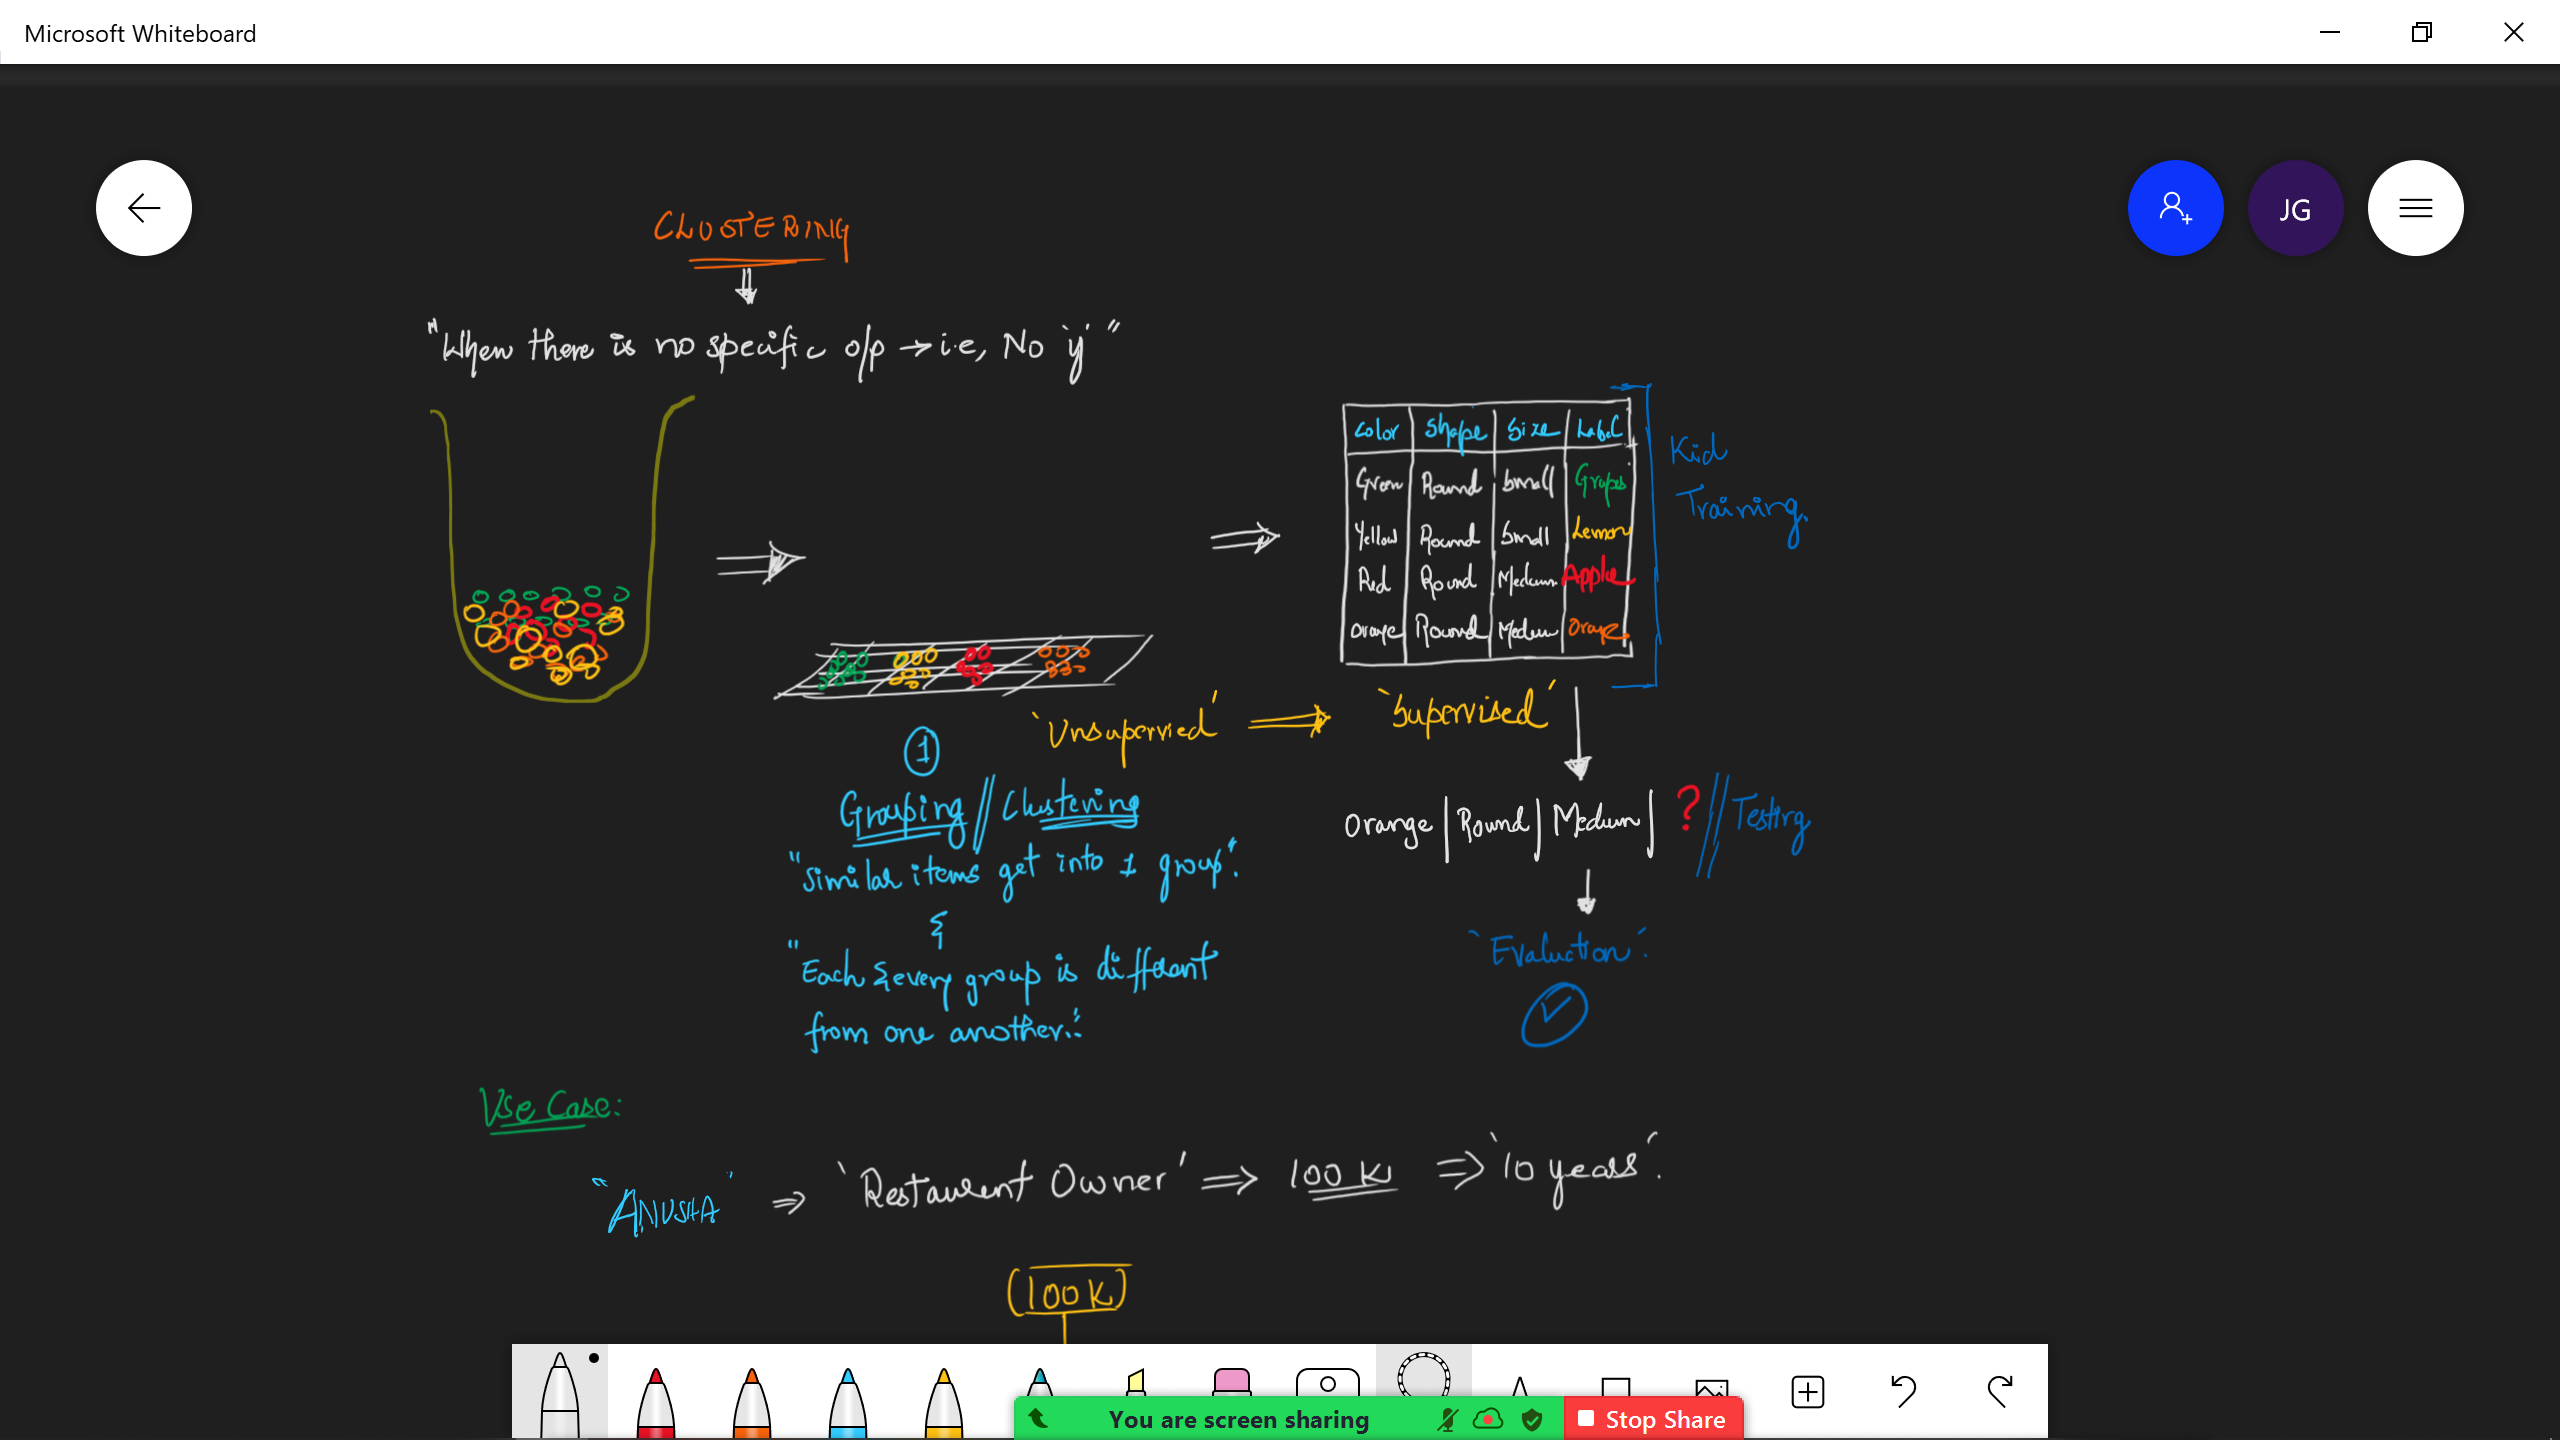 Microsoft Whiteboard
JG
CLUSTERING
"When there is no specific o/p → i.e, No 'y'"
Color Shape Size Label
Green Round Small Grapes
Yellow Round Small Lemon
Red Round Medium Apple
Orange Round Medium Orange
Kid
Training.
'Unsupervied' ⇒ 'Supervised'
1
Grouping // Clustering
"Similar items get into 1 group".
&
"Each & every group is different
from one another.".
Orange | Round | Medium | ? // Testing
'Evaluation'.
Use Case:
"ANUSHA" ⇒ 'Restaurent Owner' ⇒ 100 K ⇒ '10 years'.
(100K)
You are screen sharing
Stop Share